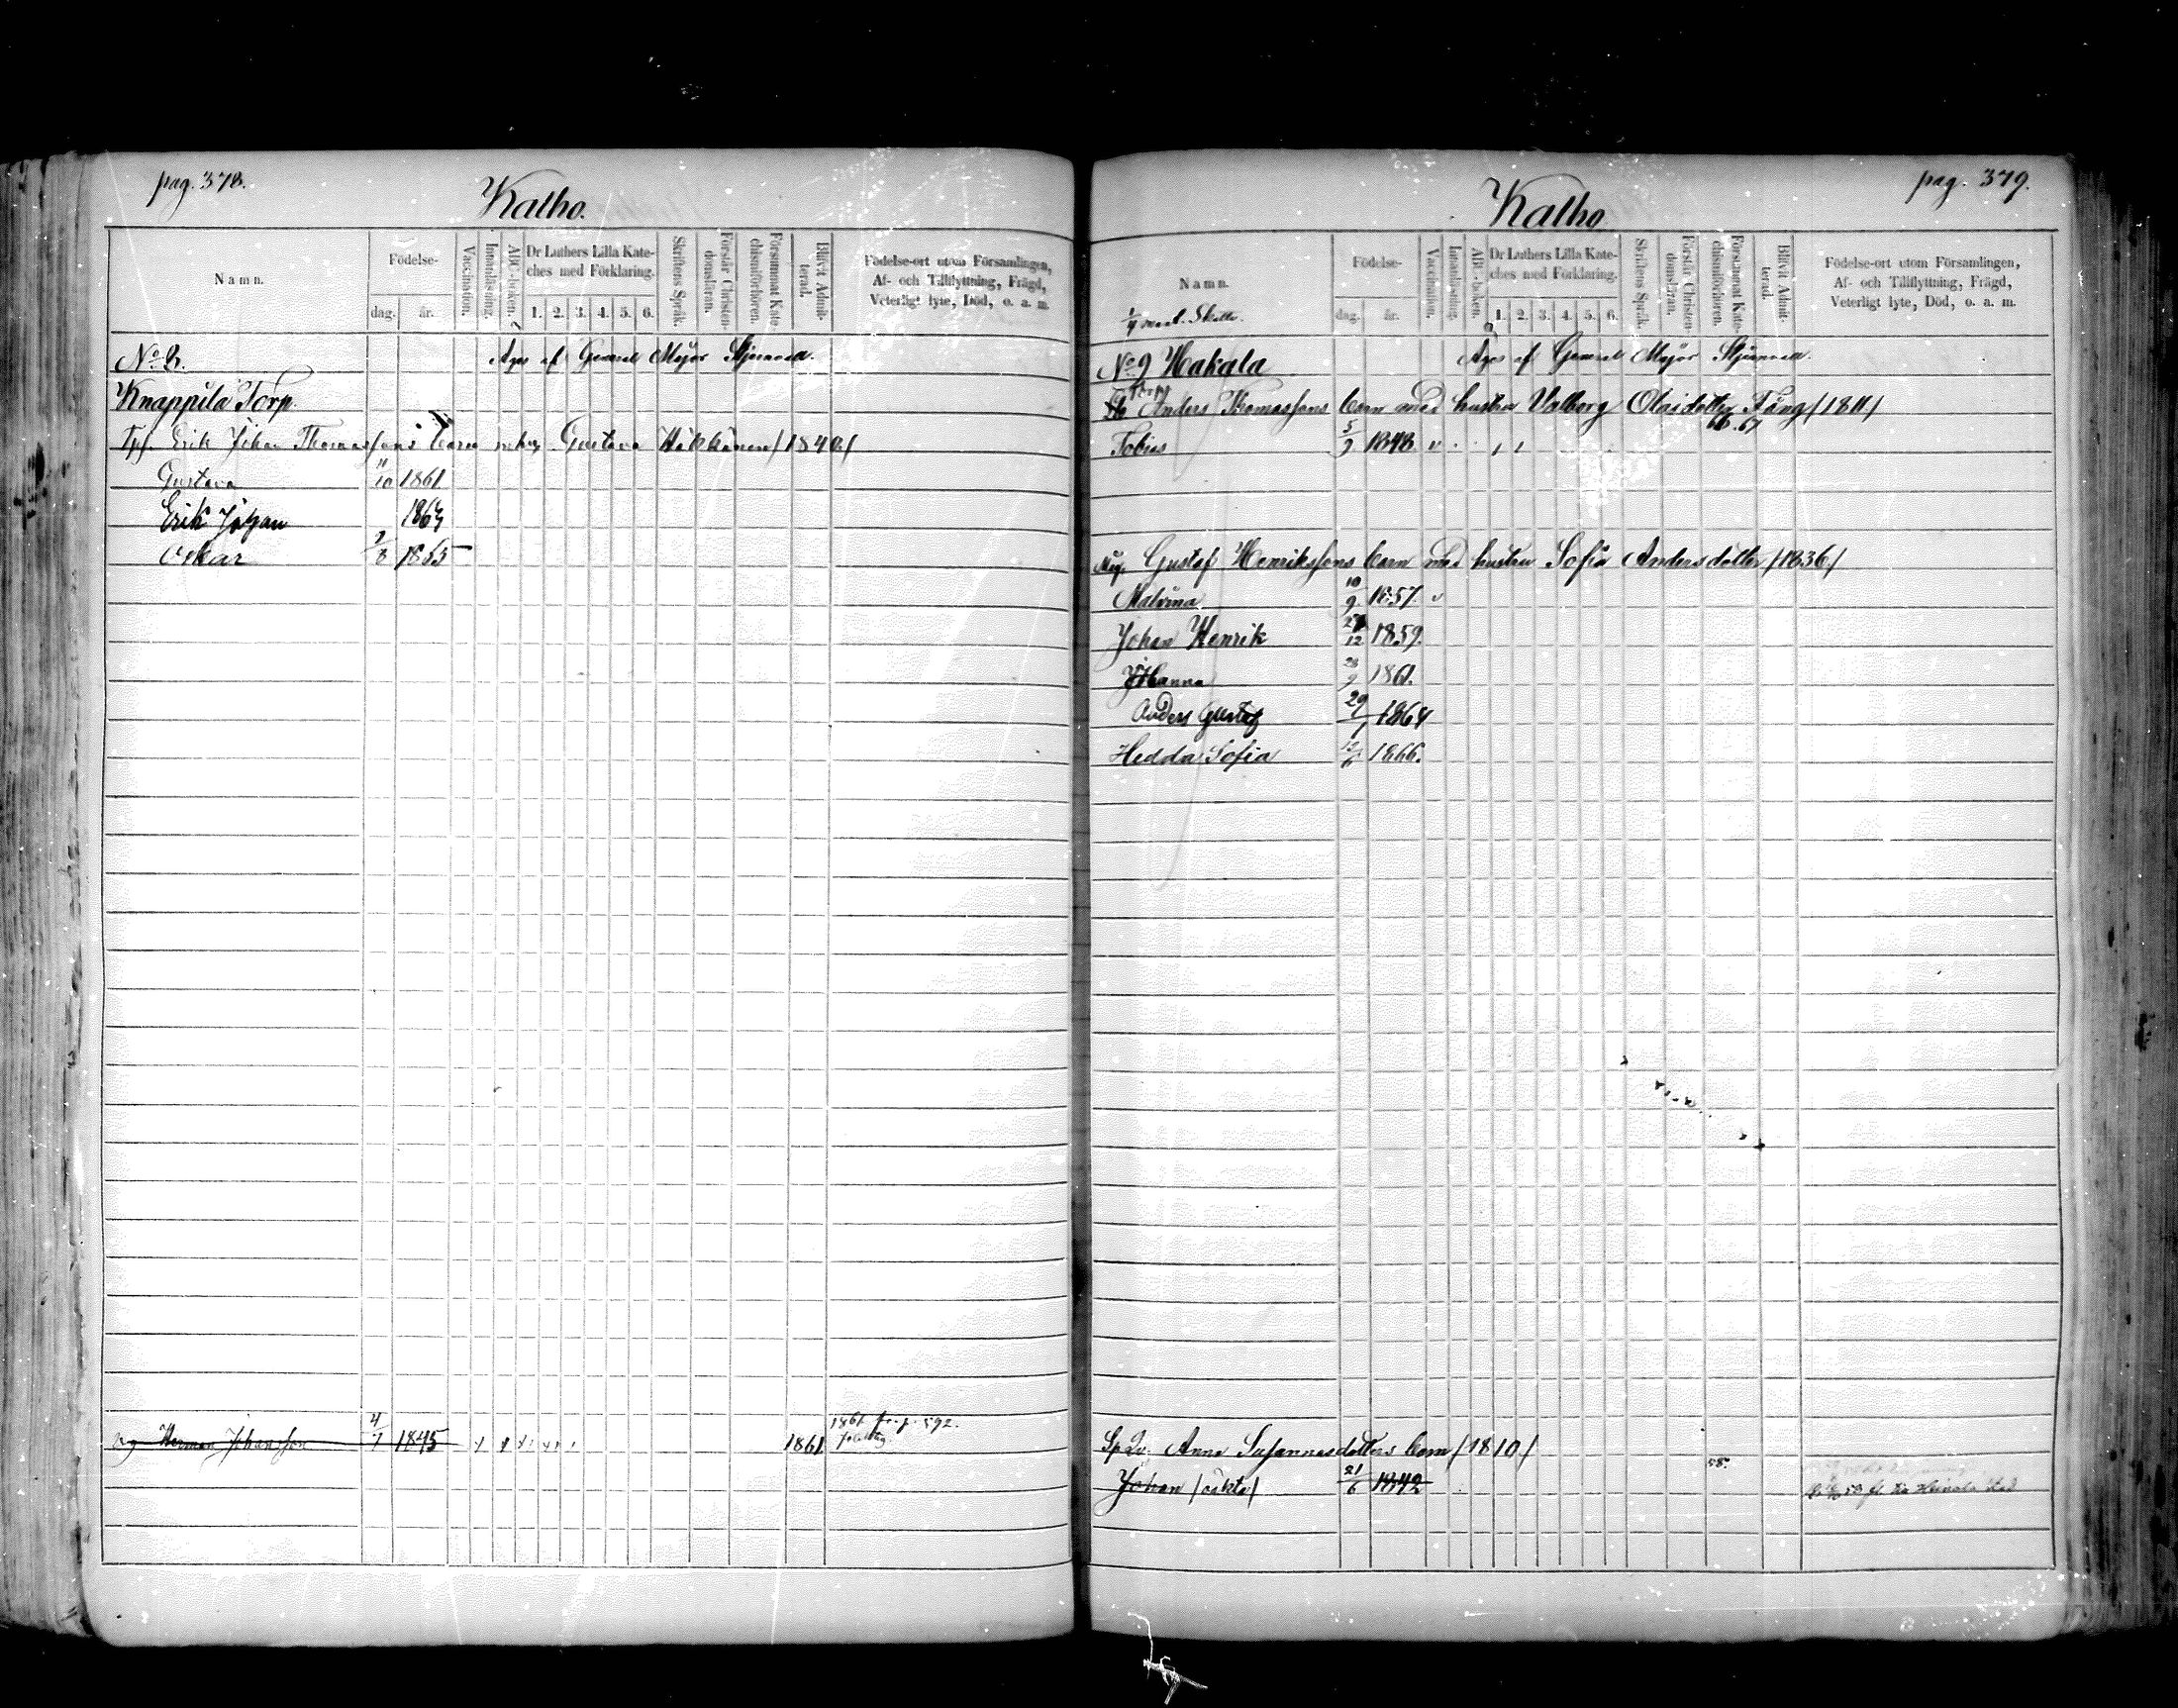 pag. 378.
Kalho.
Namn.
Födelse-
dag.
år.
Vaccination.
Innanläsning.
ABC-boken.
Dr Luthers Lilla Kate-
ches med Förklaring.
1. 2. 3. 4. 5. 6.
Skriftens Språk.
Förstår Christen-
domsläran.
Försummat Kate-
chismiförhören.
Blivit Admit-
terad.
Födelse-ort utom Församlingen,
Af- och Tillflyttning, Frägd,
Veterligt lyte, Död, o. a. m.
No 8. Äges af General Major Stjernvall.
Knappila Torp.
Tp. Erik Johan Thomassons barn m. hu. Gustava Häkkänen /1840/
Gustava 11/10 1861
Erik Johan 1863
Oskar 2/8 1865
Herman Johansson 4/7 1845 1861 1861 p. 592.
pag. 379.
Kalho
Namn.
1/4 mant. Skatte.
Födelse-
dag.
år.
Vaccination.
Innanläsning.
ABC-boken.
Dr Luthers Lilla Kate-
ches med Förklaring.
1. 2. 3. 4. 5. 6.
Skriftens Språk.
Förstår Christen-
domsläran.
Försummat Kate-
chismiförhören.
Blivit Admit-
terad.
Födelse-ort utom Församlingen,
Af- och Tillflyttning, Frägd,
Veterligt lyte, Död, o. a. m.
No 9 Hakala Äges af General Major Stjernvall.
Anders Thomassons barn med hustru Valborg Olaidotter Fång /1811/
Tobias 5/9 1848 66. 67
Måg. Gustaf Henrikssons barn med hustru Sofia Andersdotter /1836/
Malvina 10/9 1857.
Johan Henrik 27/12 1859.
Johanna 28/9 1861.
Anders Gustaf 29/1 1864
Hedda Sofia 12/6 1866.
Sp. Qv. Anna Susannasdotters barn /1810/
Johan /oäkta/ 21/6 1842 58. 58 fl. till Heinola stad